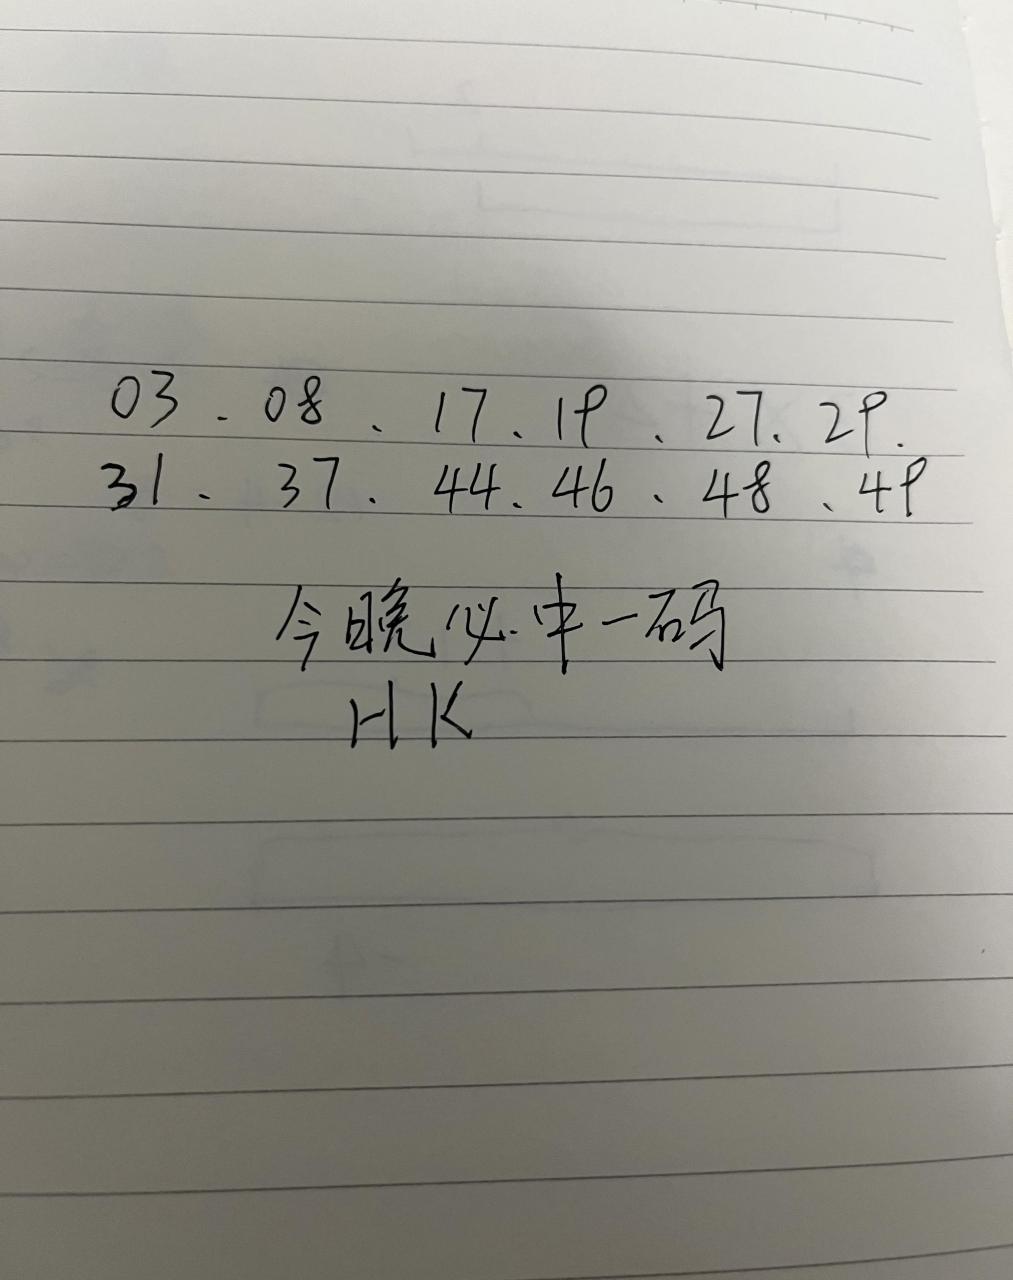 03、08、17、19、27、29.
31、37、44、46、48、49
今晚必中一码
HK